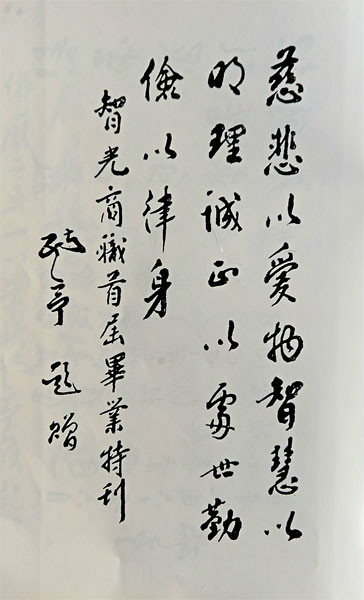 慈悲以愛物智慧以
明理誠正以處世勤
儉以律身
智光商職首屆畢業特刊
亭題贈